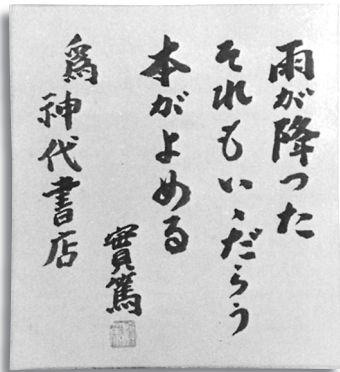 雨が降った
それもいゝだらう
本がよめる
實篤
為神代書店